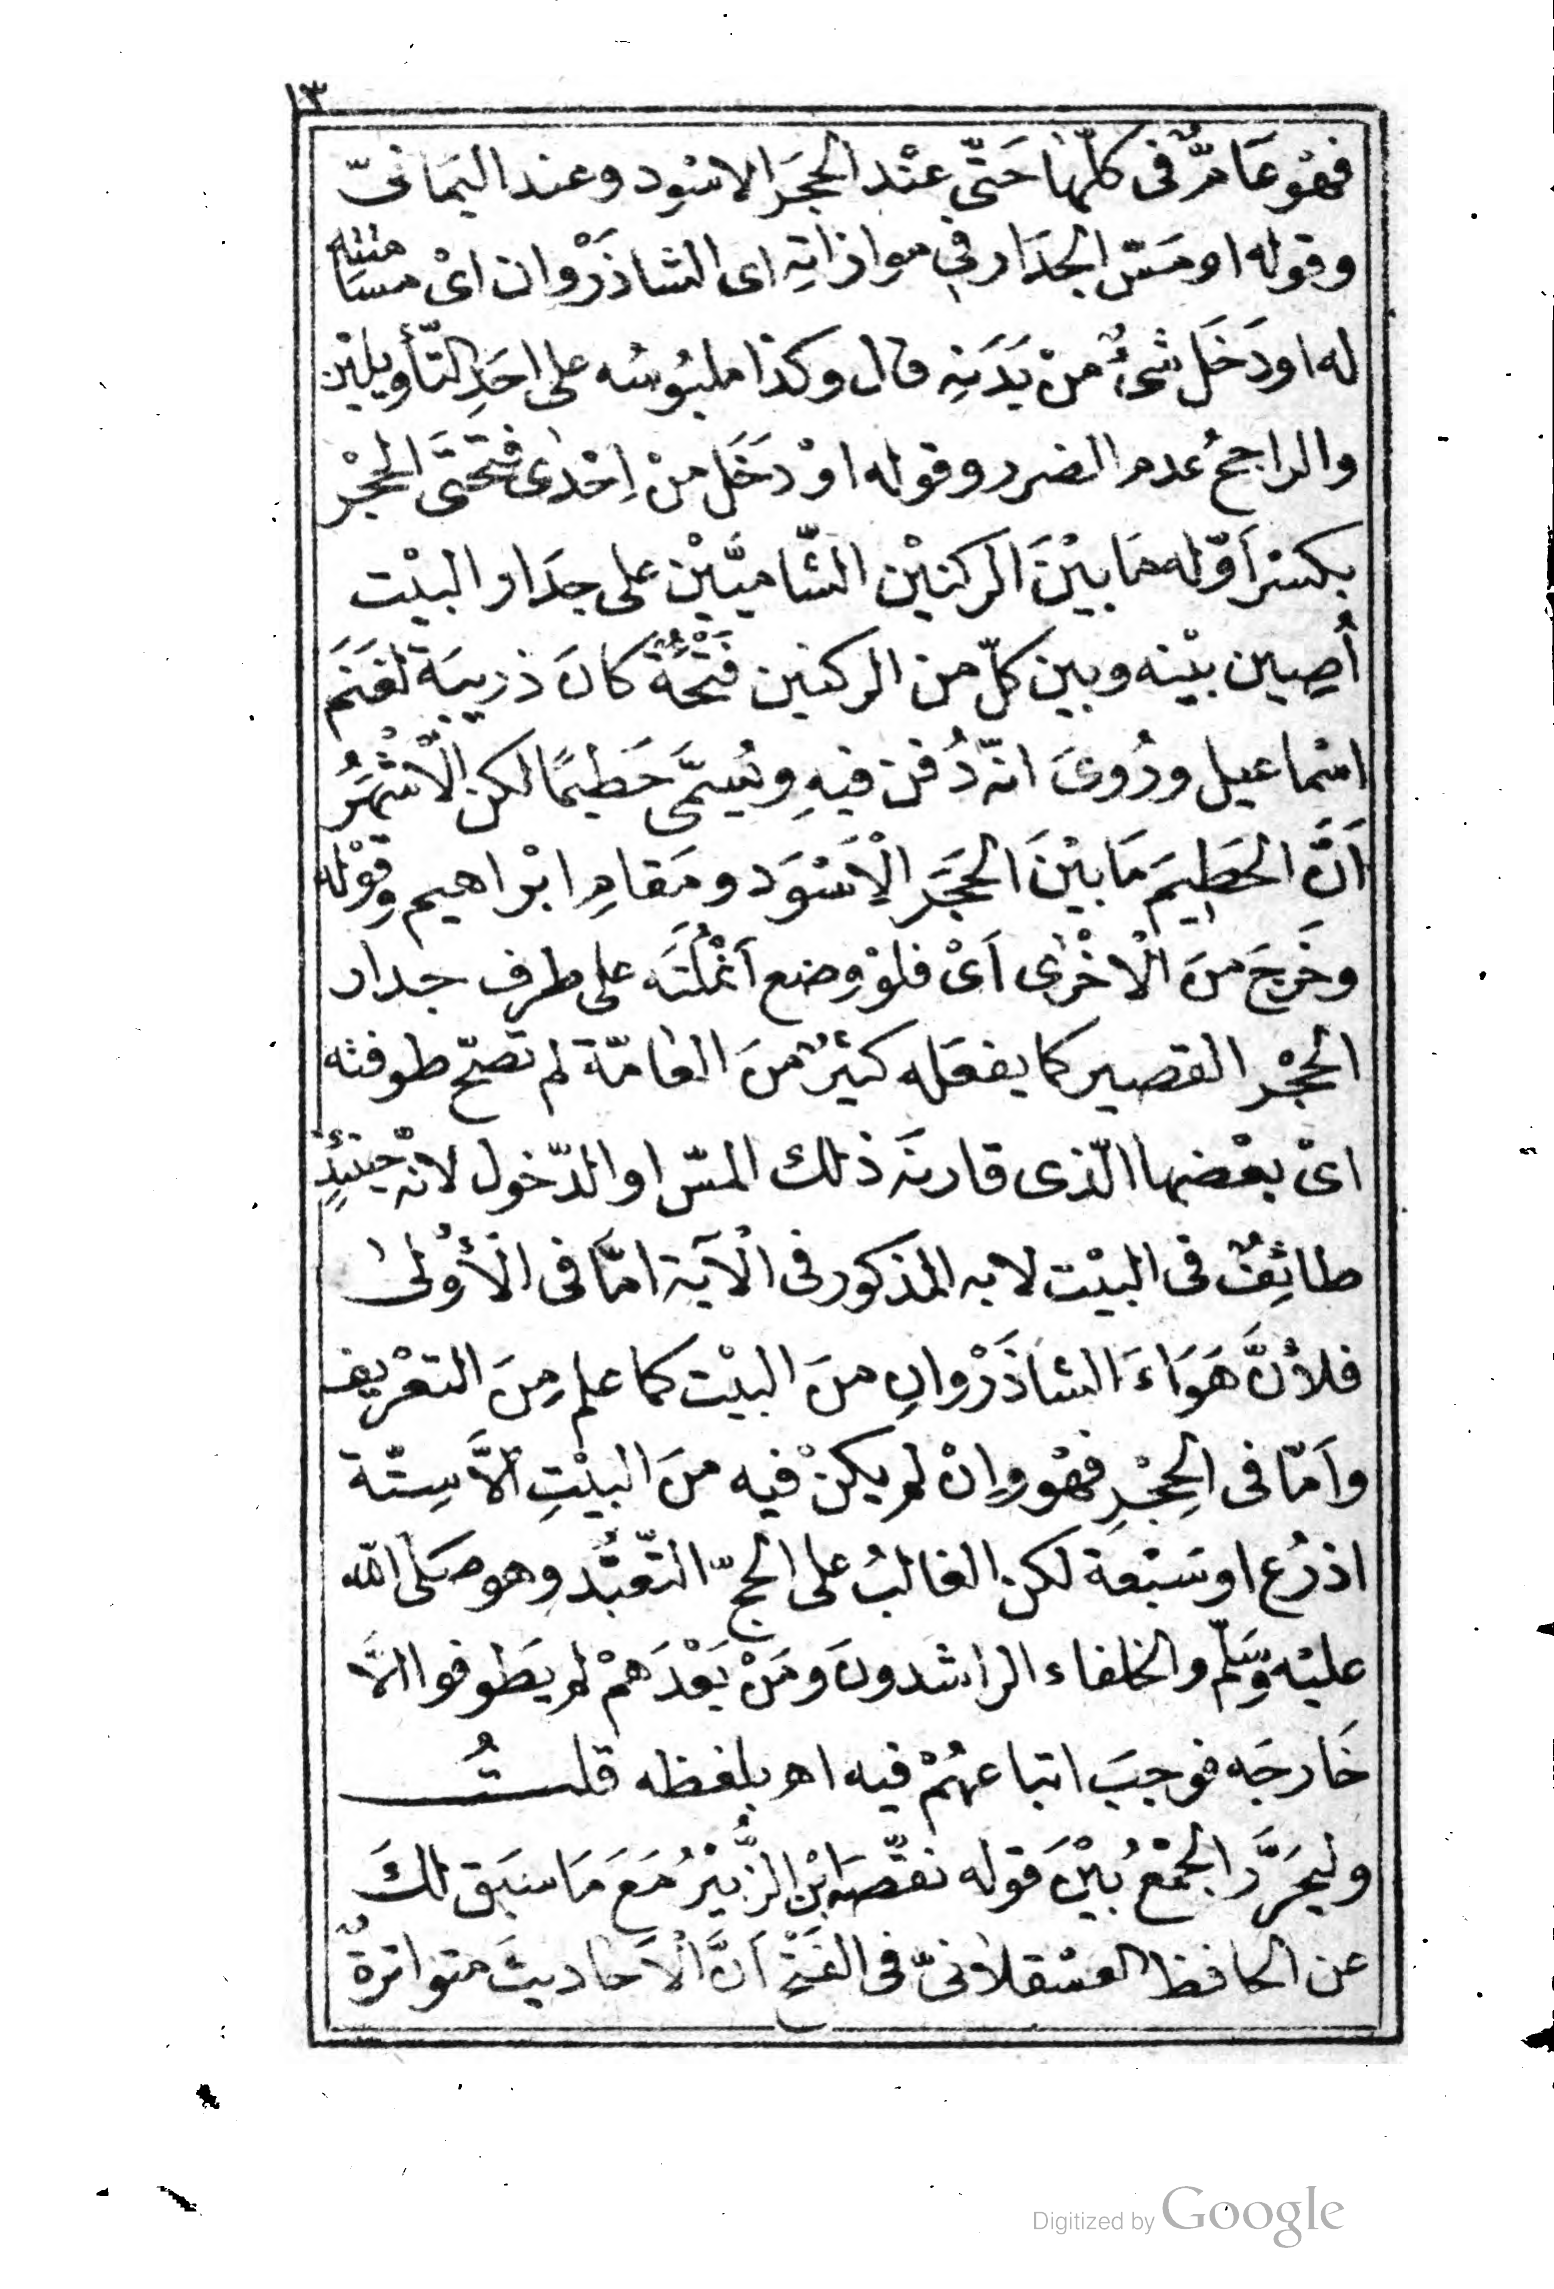 ١٣
فهْو عَامٌّ فى كلّها حَتّى عنْد الحجَر الاسْود وعند اليَمانىّ
وقوله او مَسّ الجدَار في موازاتِهِ اى الشاذَرْوان اىْ مسَامتته
له او دَخَل شئٌ منْ بَدَنِهِ قال وكذا ملبُوسُه على احَدِ التّأويلين
والراجحُ عدم الضرر وقوله اوْ دَخَل منْ اِحْدى فتحتَى الحِجْر
بكسْر اَوّله مَا بيْنَ الركنيْن الشّاميَّيْن على جدَار البيْت
بيْنه وبين كلّ من الركنين فَتْحَةٌ كانَ ذريبَة لغَنَم
اسْماعيل ورُوىَ انّه دُفن فيهِ ويُسمَّى حَطيمًا لكن الْاشْهَرُ
اَنَّ الحَطِيمَ مَا بيْنَ الحَجَر الْاَسْوَد ومَقامِ ابْراهيم وقوْله
وخَرجَ منَ الْاخْرٰى اَىْ فلوْ وضع اَنْمُلَتَه على طرف جدار
الحِجْر القصير كما يفعَله كثيْرٌ منَ العامّة لم تصحّ طوفته
اىْ بعْضها الّذى قارنَه ذلك المسّ او الدّخول لانّه حينئِذٍ
طائِفٌ فى البيْت لا به المذكور فى الْآيَة امّا فى الْأوْلىٰ
فلأنَّ هَوَاءَ الشاذَرْوانِ منَ البيْت كما علم مِنَ التعْريف
واَمّا فى الحِجْرِ فهْو واِنْ لم يكنْ فيه منَ البيْتِ اِلاَّ سِتّة
اذرُع او سَبْعة لكن الغالبُ على الحجّ التّعبُّد وهو صَلى الله
عليْه وَسَلّم والخلفاء الراشدونَ ومَنْ بَعْدَهمْ لم يَطوفوا الاَّ
خَارجَه فوجبَ اتباعهُمْ فيه اهـ بلفظه قلـــتُ
وليحَرَّر الجمْعُ بيْنَ قوله نقّصَه ابْن الزُّبيْرُ مَعَ مَا سَبَق لكَ
عن الحافظ العسْقلانىّ فى الفَتْحِ اَنَّ الْاَحاديثَ متواترةٌ
Digitized by Google